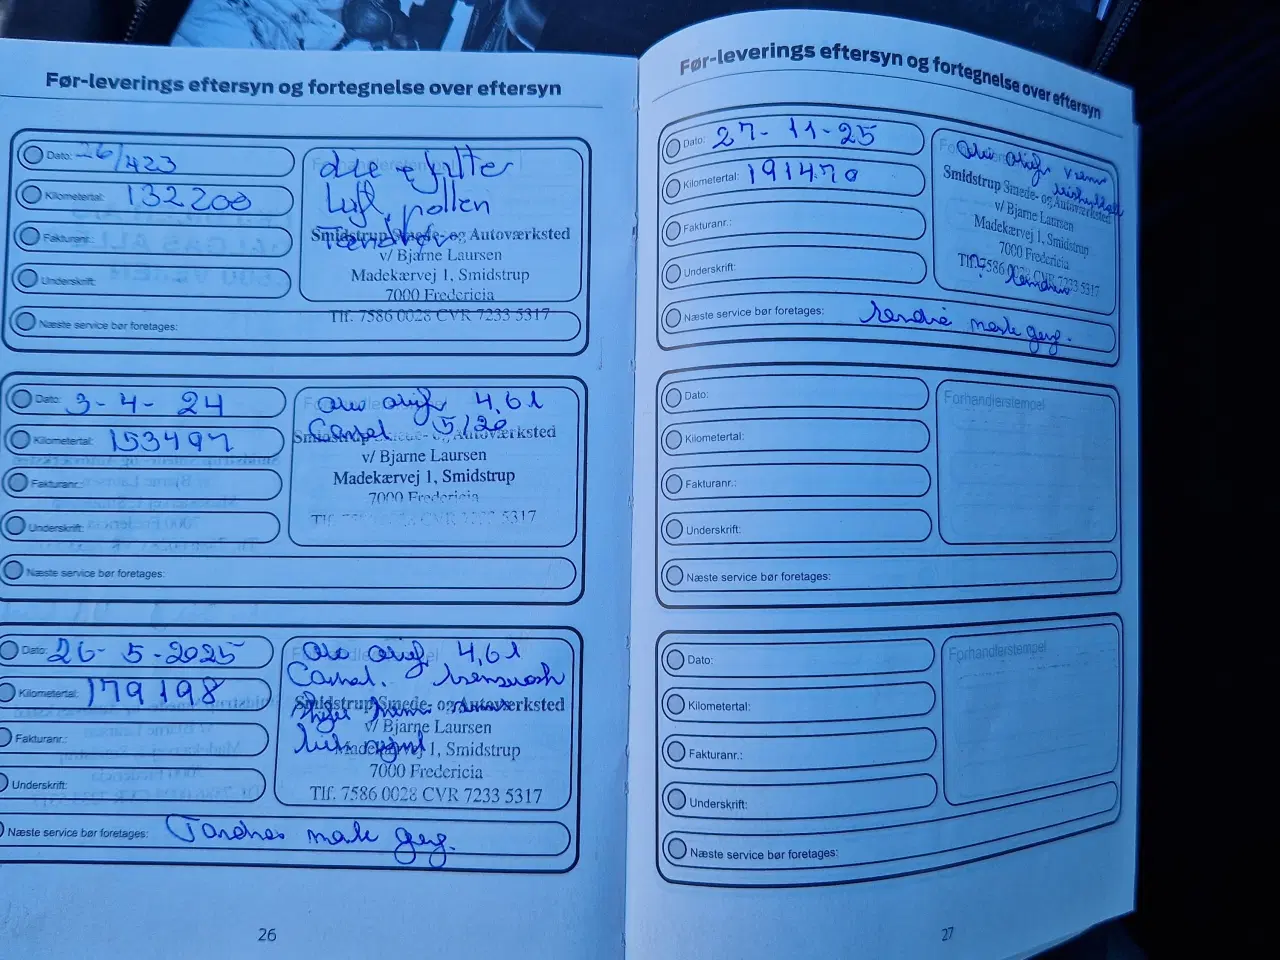 Før-leverings eftersyn og fortegnelse over eftersyn
Dato: 26/423
Kilometertal: 132200
Fakturanr.:
Underskrift:
Næste service bør foretages:
olie filter
Luft, pollen
Smidstrup Smede- og Autoværksted
v/ Bjarne Laursen
Madekærvej 1, Smidstrup
7000 Fredericia
Tlf. 7586 0028 CVR 7233 5317
Dato: 3-4-24
Kilometertal: 153497
Fakturanr.:
Underskrift:
Næste service bør foretages:
4,6 l
5/20
Smidstrup Smede- og Autoværksted
v/ Bjarne Laursen
Madekærvej 1, Smidstrup
7000 Fredericia
Tlf. 5317
Dato: 26-5-2025
Kilometertal: 179198
Fakturanr.:
Underskrift:
Næste service bør foretages:
4,6 l
Smidstrup Smede- og Autoværksted
v/ Bjarne Laursen
Madekærvej 1, Smidstrup
7000 Fredericia
Tlf. 7586 0028 CVR 7233 5317
26
Før-leverings eftersyn og fortegnelse over eftersyn
Dato: 27-11-25
Kilometertal: 191470
Fakturanr.:
Underskrift:
Næste service bør foretages:
Smidstrup Smede- og Autoværksted
v/ Bjarne Laursen
Madekærvej 1, Smidstrup
7000 Fredericia
Tlf. 7586 0028 CVR 7233 5317
Dato:
Kilometertal:
Fakturanr.:
Underskrift:
Næste service bør foretages:
Forhandlerstempel
Dato:
Kilometertal:
Fakturanr.:
Underskrift:
Næste service bør foretages:
Forhandlerstempel
27